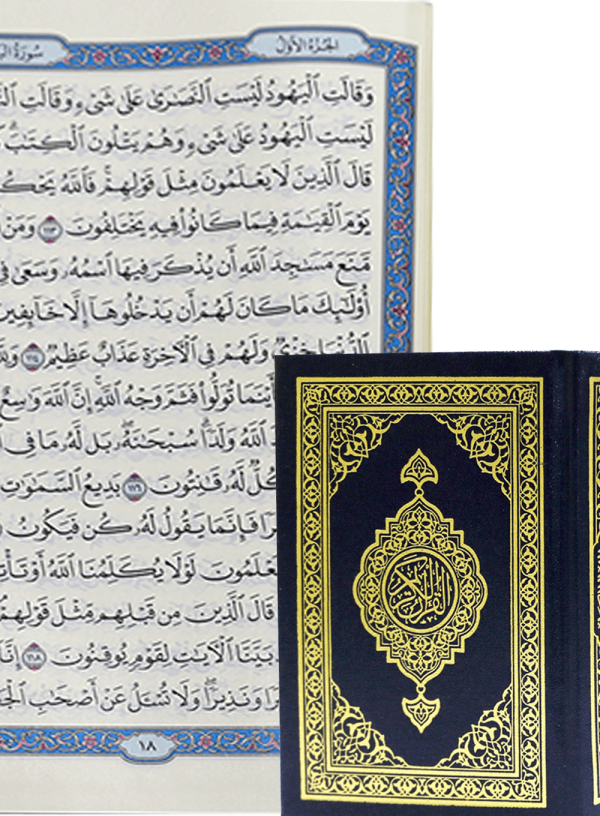 الجُزْءُ الأَوَّلُ
سُورَةُ
وَقَالَتِ ٱلْيَهُودُ لَيْسَتِ ٱلنَّصَٰرَىٰ عَلَىٰ شَىْءٍ وَقَالَتِ
لَيْسَتِ ٱلْيَهُودُ عَلَىٰ شَىْءٍ وَهُمْ يَتْلُونَ ٱلْكِتَٰبَ ۗ
قَالَ ٱلَّذِينَ لَا يَعْلَمُونَ مِثْلَ قَوْلِهِمْ ۚ فَٱللَّهُ
يَوْمَ ٱلْقِيَٰمَةِ فِيمَا كَانُوا۟ فِيهِ يَخْتَلِفُونَ ١١٣ وَمَنْ
مَّنَعَ مَسَٰجِدَ ٱللَّهِ أَن يُذْكَرَ فِيهَا ٱسْمُهُۥ وَسَعَىٰ فِى
أُو۟لَٰٓئِكَ مَا كَانَ لَهُمْ أَن يَدْخُلُوهَآ إِلَّا خَآئِفِينَ
ٱلدُّنْيَا خِزْىٌ وَلَهُمْ فِى ٱلْءَاخِرَةِ عَذَابٌ عَظِيمٌ ١١٤
فَأَيْنَمَا تُوَلُّوا۟ فَثَمَّ وَجْهُ ٱللَّهِ ۚ إِنَّ ٱللَّهَ وَٰسِعٌ
ٱللَّهُ وَلَدًا ۗ سُبْحَٰنَهُۥ ۖ بَل لَّهُۥ مَا فِى
كُلٌّ لَّهُۥ قَٰنِتُونَ ١١٦ بَدِيعُ ٱلسَّمَٰوَٰتِ
فَإِنَّمَا يَقُولُ لَهُۥ كُن فَيَكُونُ
يَعْلَمُونَ لَوْلَا يُكَلِّمُنَا ٱللَّهُ أَوْ تَأْتِينَآ
قَالَ ٱلَّذِينَ مِن قَبْلِهِم مِّثْلَ قَوْلِهِمْ
بَيَّنَّا ٱلْءَايَٰتِ لِقَوْمٍ يُوقِنُونَ ١١٨ إِنَّآ
وَنَذِيرًا ۖ وَلَا تُسْـَٔلُ عَنْ أَصْحَٰبِ
١٨
القرآن الكريم